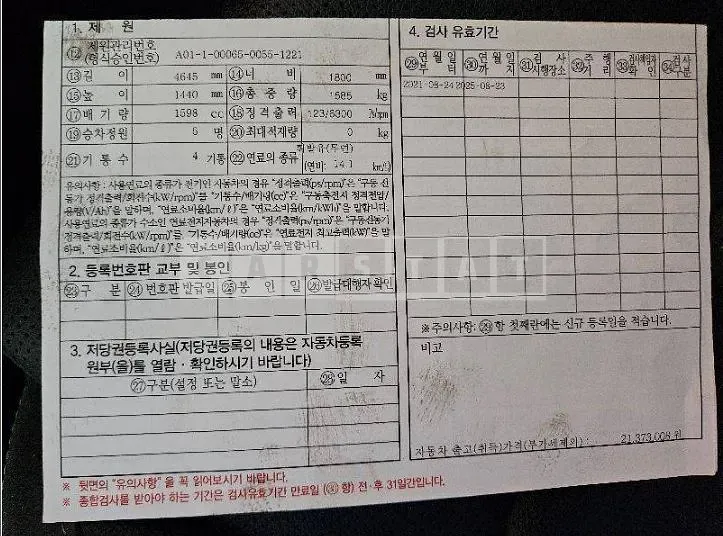 1. 제 원
⑫ 제원관리번호
(형식승인번호)
A01-1-00065-0055-1221
⑬길 이 4645 mm ⑭너 비 1800 mm
⑮높 이 1440 mm ⑯총 중 량 1585 kg
⑰배 기 량 1598 cc ⑱정격출력 123/6300 ps/rpm
⑲승차정원 5 명 ⑳최대적재량 0 kg
㉑기 통 수 4 기통 ㉒연료의 종류 휘발유(무연)
(연비: 14.1 km/ℓ)
유의사항 : 사용연료의 종류가 전기인 자동차의 경우 "정격출력(ps/rpm)"은 "구동전
동기 정격출력/회전수(kW/rpm)"를 "기통수/배기량(cc)"은 "구동축전지 정격전압/
용량(V/Ah)"을 말하며, "연료소비율(km/ℓ)"은 "연료소비율(km/kWh)"을 말합니다.
사용연료의 종류가 수소인 연료전지자동차의 경우 "정격출력(ps/rpm)"은 "구동전동기
정격출력/회전수(kW/rpm)"를 "기통수/배기량(cc)"은 "연료전지 최고출력(kW)"을 말
하며, "연료소비율(km/ℓ)"은 "연료소비율(km/kg)"을 말합니다.
2. 등록번호판 교부 및 봉인
㉓구 분 ㉔번호판 발급일 ㉕봉 인 일 ㉖발급대행자 확인
3. 저당권등록사실(저당권등록의 내용은 자동차등록
원부(을)를 열람ㆍ확인하시기 바랍니다)
㉗구분(설정 또는 말소) ㉘일 자
4. 검사 유효기간
㉙연 월 일 부 터 ㉚연 월 일 까 지 ㉛검 사 시행장소 ㉜주 행 거 리 ㉝검사책임자 확 인 ㉞검사 구분
2021-08-24 2025-08-23
※주의사항: ㉙항 첫째란에는 신규 등록일을 적습니다.
비고
자동차 출고(취득)가격(부가세제외) : 21,373,008 원
※ 뒷면의 "유의사항" 을 꼭 읽어보시기 바랍니다.
※ 종합검사를 받아야 하는 기간은 검사유효기간 만료일 (㉚ 항) 전ㆍ후 31일간입니다.